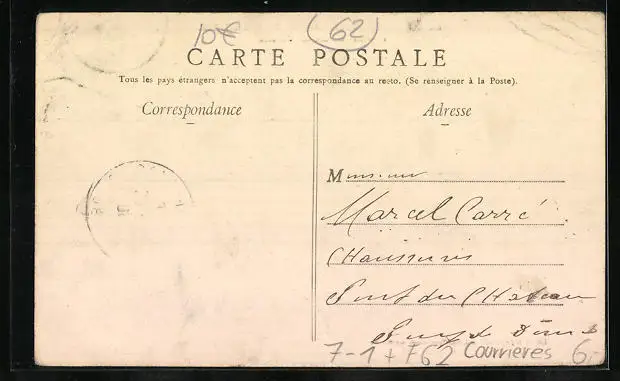 10€ (62)
CARTE POSTALE
Tous les pays étrangers n'acceptent pas la correspondance au recto. (Se renseigner à la Poste).
Correspondance
Adresse
Monsieur
Marcel Carré
Chaussures
Pont du Château
Puy de Dôme
7-1+ F62 Courrieres 6,-